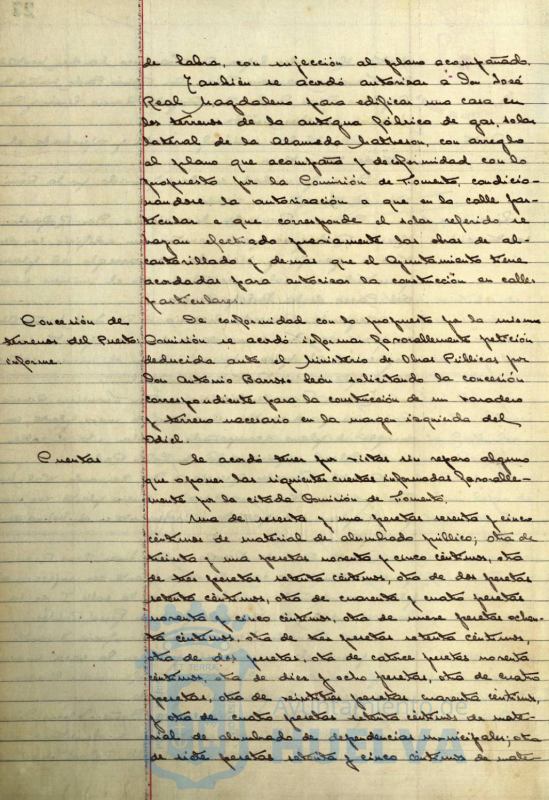 de Labra, con sujección al plano acompañado.
También se acordó autorizar á Don José
Real Magdaleno para edificar una casa en
los terrenos de la antigua fábrica de gas, solar
lateral de la Alameda Matheson, con arreglo
al plano que acompaña y de conformidad con lo
propuesto por la Comisión de Fomento, condicio-
nandose la autorización a que en la calle par-
ticular a que corresponde el solar referido se
hayan efectuado previamente las obras de al-
cantarillado y demas que el Ayuntamiento tiene
acordadas para autorizar la construcción en calles
particulares.
Concesión de
terrenos del Puerto:
informe.
De conformidad con lo propuesto por la misma
Comisión se acordó informar favorablemente petición
deducida ante el Ministerio de Obras Públicas por
Don Antonio Barroso León solicitando la concesión
correspondiente para la construcción de un varadero
y terreno necesario en la margen izquierda del
Odiel.
Cuentas
Se acordó tener por vistas sin reparo alguno
que oponer las siguientes cuentas informadas favorable-
mente por la citada Comisión de Fomento.
Una de sesenta y una pesetas sesenta y cinco
céntimos de material de alumbrado público; otra de
treinta y una pesetas noventa y cinco céntimos, otra
de tres pesetas setenta céntimos, otra de dos pesetas
setenta céntimos, otra de cuarenta y cuatro pesetas
noventa y cinco céntimos, otra de nueve pesetas ochen-
ta céntimos, otra de tres pesetas setenta céntimos,
otra de dos pesetas, otra de catorce pesetas noventa
céntimos, otra de diez y ocho pesetas, otra de cuatro
pesetas, otra de veintitres pesetas cuarenta céntimos,
y otra de cuatro pesetas setenta céntimos de mate-
rial de alumbrado de dependencias municipales; otra
de siete pesetas setenta y cinco céntimos de mate-
Ayuntamiento de
HUELVA